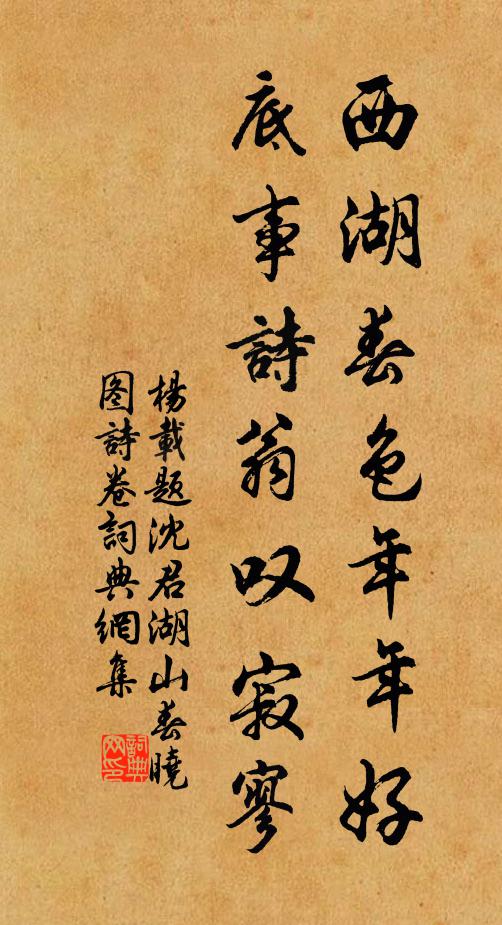 西湖春色年年好
底事詩翁叹寂寥
杨載题沈君湖山春曉
图詩卷詞典網集
詞典
网印